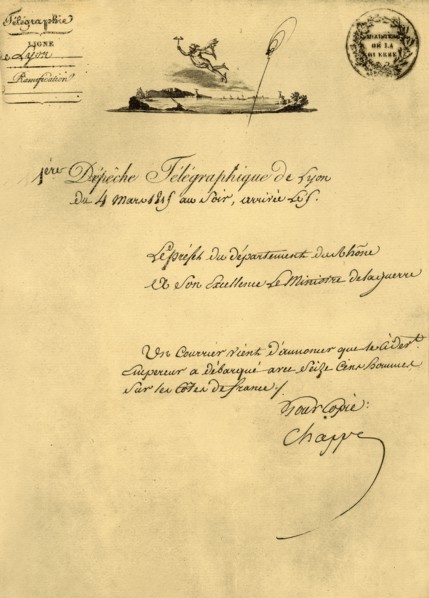 Télégraphie
LIGNE
de Lyon
Ramification
MINISTERE
DE LA
GUERRE
1ère Dépêche Télégraphique de Lyon
du 4 Mars 1815 au Soir, arrivée le 5.
Le préfet du département du Rhône
à Son Excellence Le Ministre de la guerre
Un Courrier vient d'annoncer que le cidevt
Empereur a débarqué avec Seize Cens hommes
Sur les Côtes de france ./
Pour Copie :
Chappe